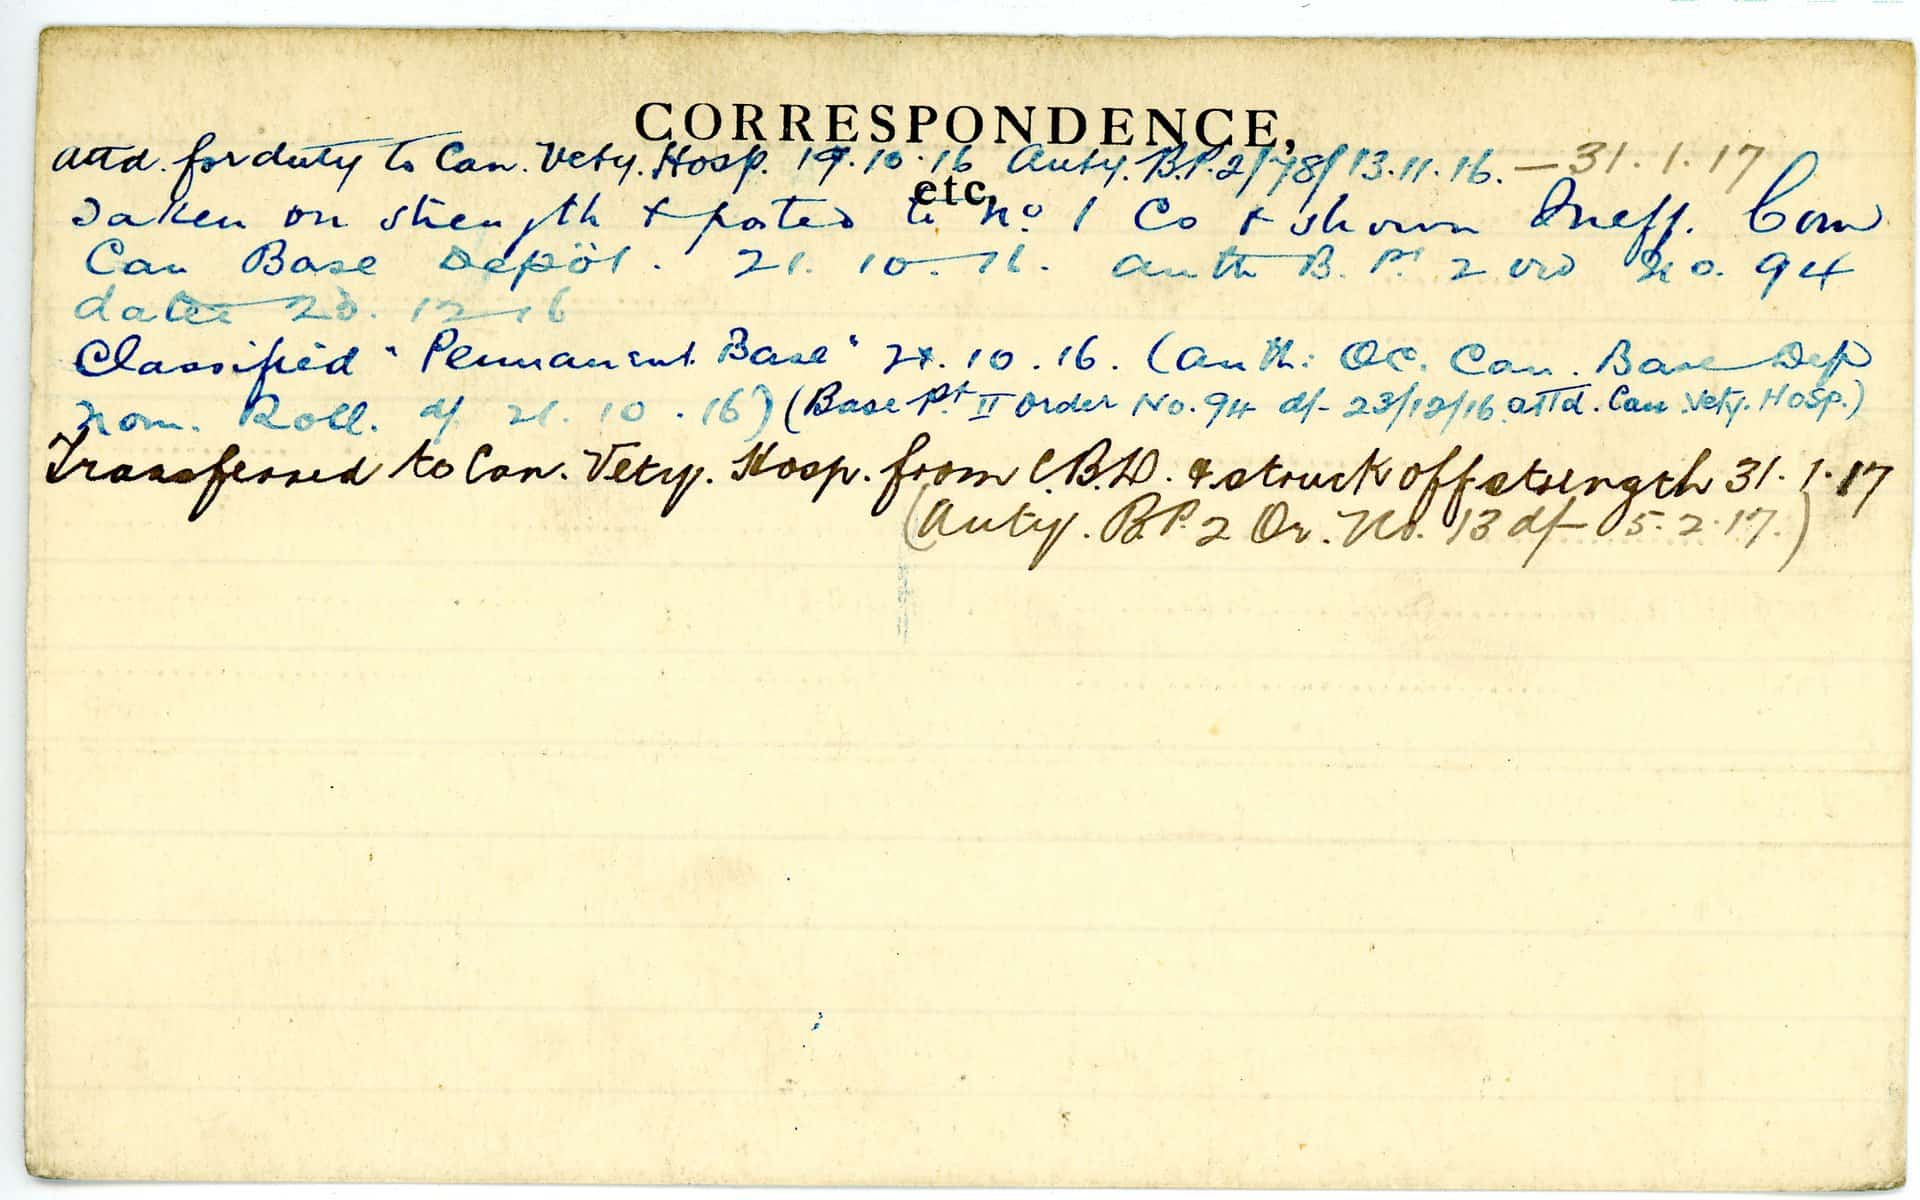 CORRESPONDENCE,
attd. for duty to Can. Vety. Hosp. 19.10.16 Auty. B.P.2/78/13.11.16. — 31.1.17
etc.
Taken on strength & posted to No. 1 Co & shown Ineff. Com
Can Base Depôt. 21.10.16. auth B. Pt 2 ord No. 94
dated 23.12.16
Classified "Permanent Base" 21.10.16. (auth: OC. Can. Base Dep
Nom. Roll. d/ 21.10.16) (Base Pt II Order No. 94 d/- 23/12/16 attd. Can Vety. Hosp.)
Transferred to Can. Vety. Hosp. from C.B.D. & struck off strength 31.1.17
(Auty. B.P. 2 Or. No. 13 d/- 5.2.17.)